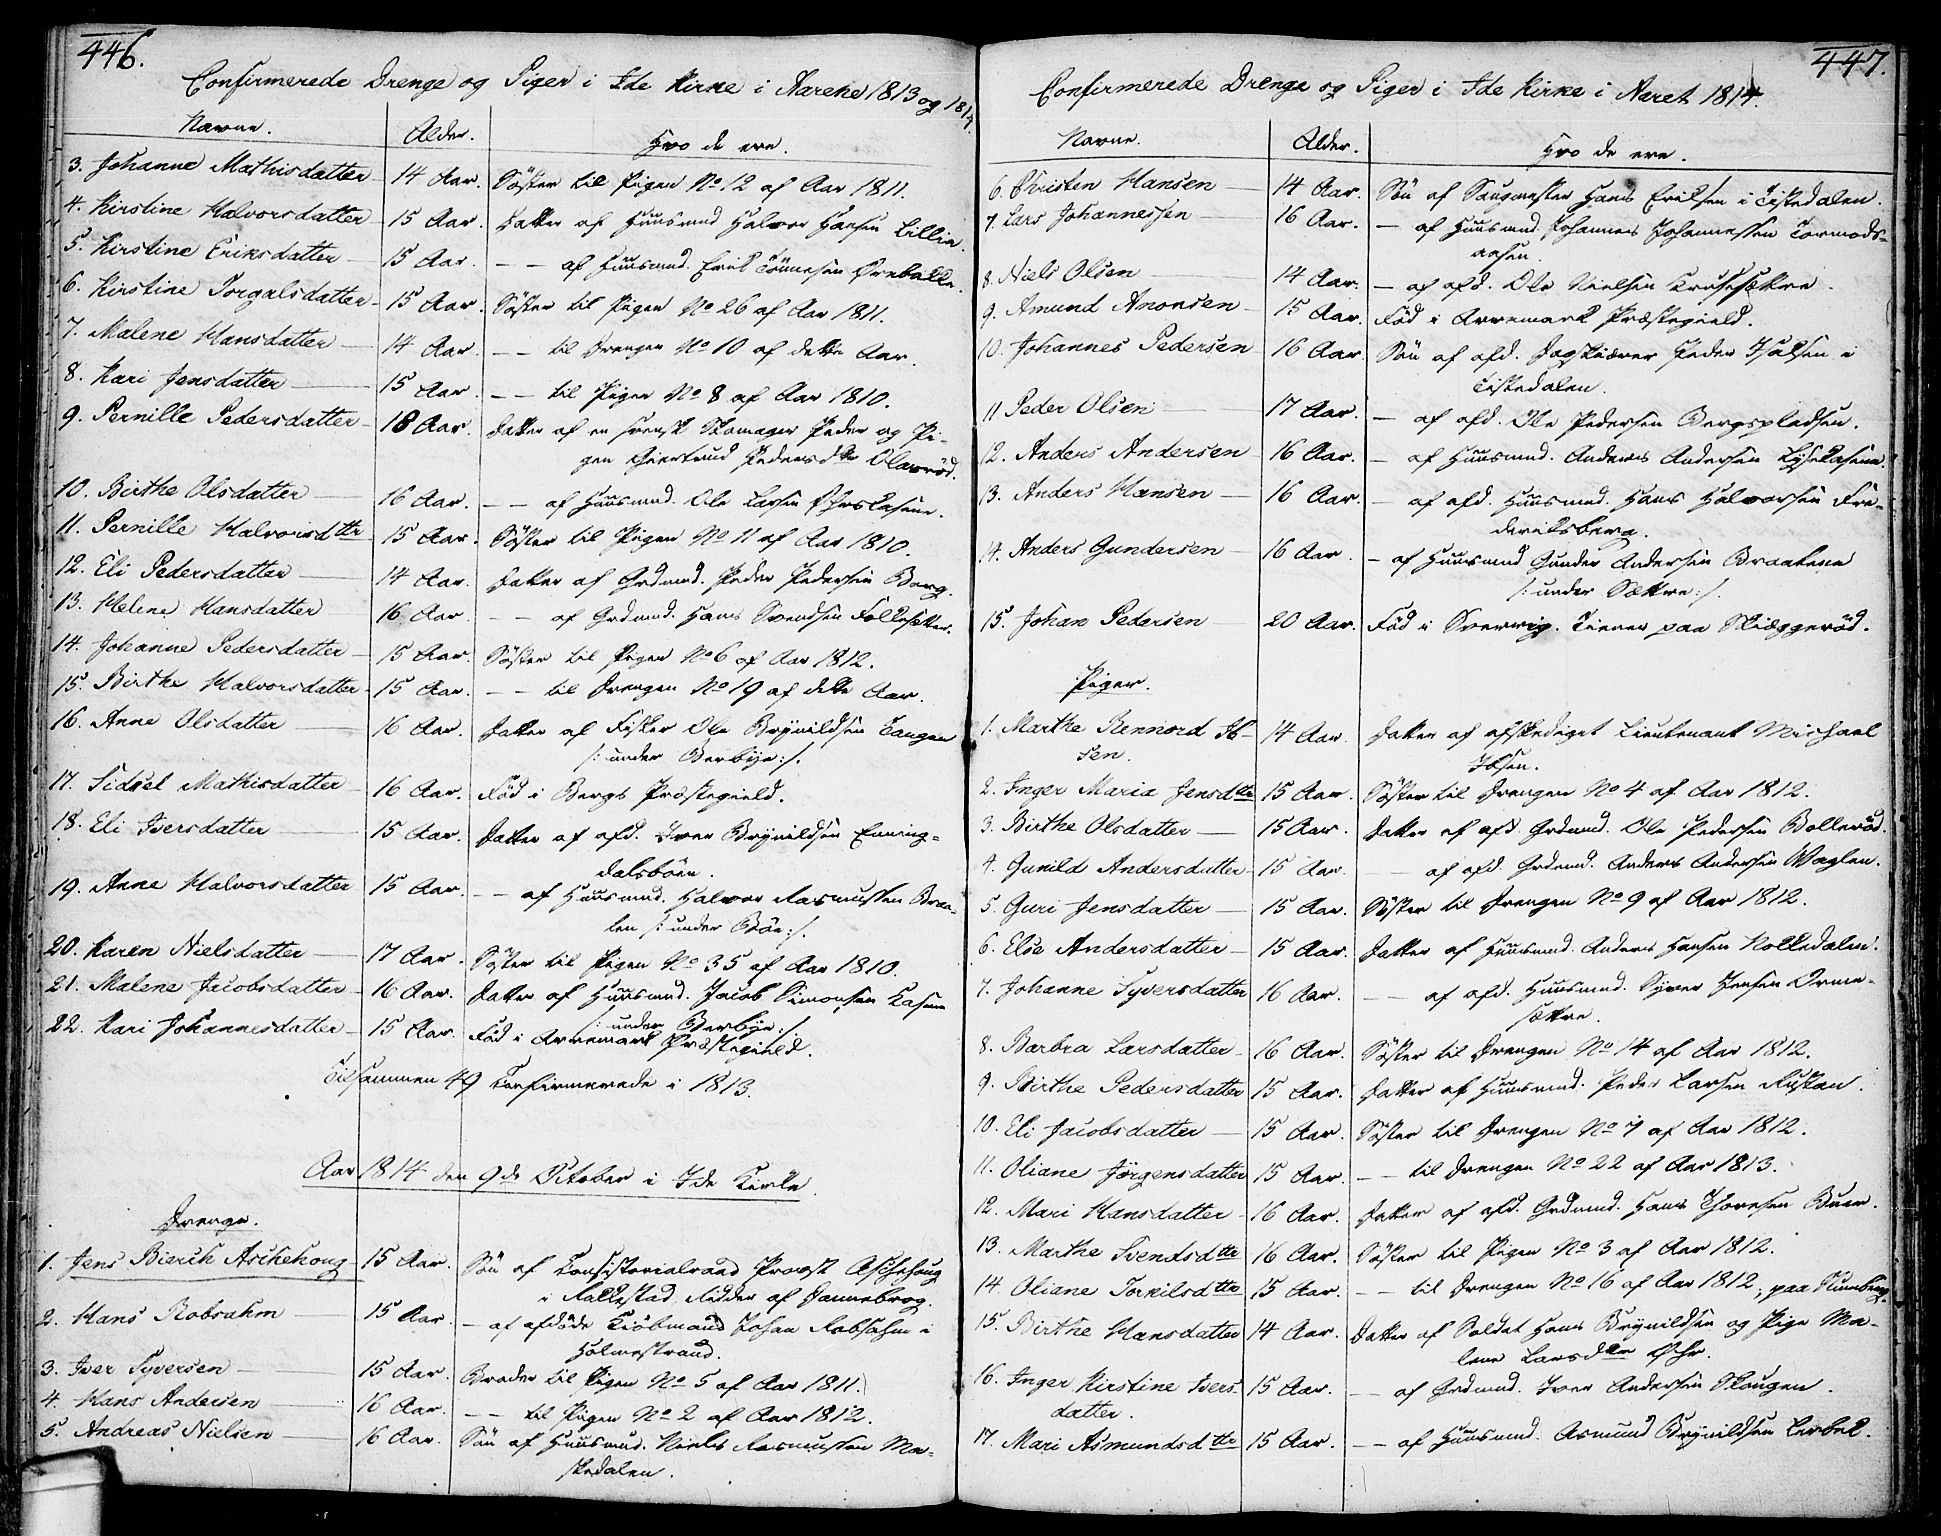 446.
Confirmerede Drenge og Piger i Ide Kirke i Aarene 1813 og 1814.
Navne. Alder. Hvo de ere.
3. Johanne Mathisdatter 14 Aar. Söster til Pigen No 12 af Aar 1811.
4. Kirstine Halvorsdatter 15 Aar. Datter af Huusmd Halvor Hansen Lillie.
5. Kirstine Eriksdatter 15 Aar. — — af Huusmd. Erik Tönnesen
6. Kirstine Torgalsdatter 15 Aar. Söster til Pigen No 26 af Aar 1811.
7. Malene Hansdatter 14 Aar. — — til Drengen No 10 af dette Aar.
8. Kari Jensdatter 15 Aar. — — til Pigen No 8 af Aar 1810.
9. Pernille Pedersdatter 18 Aar. Datter af en svensk Skomager Peder og Pi-
gen Giertrud Pedersdtr
10. Birthe Olsdatter 16 Aar. — — af Huusmd. Ole Larsen
11. Pernille Halvorsdttr 15 Aar. Söster til Pigen No 11 af Aar 1810.
12. Eli Pedersdatter 14 Aar. Datter af Grdmd. Peder Pedersen Berg.
13. Helene Hansdatter 16 Aar. — — af Grdmd. Hans Svendsen Folkesetter.
14. Johanne Pedersdatter 15 Aar. Söster til Pigen No 6 af Aar 1812.
15. Birthe Halvorsdatter 15 Aar. — — til Drengen No 19 af dette Aar.
16. Anne Olsdatter 16 Aar. Datter af Fisker Ole Brynildsen Tangen
/: under Berbye :/.
17. Sidsel Mathisdatter 16 Aar. Föd i Bergs Præstegield.
18. Eli Iversdatter 15 Aar. Datter af afd. Iver Brynildsen Enning-
dalsböen.
19. Anne Halvorsdatter 15 Aar. — — af Huusmd. Halvor Rasmussen Braa-
ten /: under Böe :/.
20. Karen Nielsdatter 17 Aar. Söster til Pigen No 35 af Aar 1810.
21. Malene Jacobsdatter 16 Aar. Datter af Huusmd. Jacob Simonsen Kasene
/: under Berbye :/.
22. Kari Johannesdatter 15 Aar. Föd i Arremark Præstegield.
Tilsammen 49 Confirmerede i 1813.
Aar 1814 den 9de October i Ide Kirke.
Drenge.
1. Jens Bierch Aschehoug 15 Aar. Sön af Consistorialraad Provst Aschehoug
i Rakkestad, Ridder af Dannebrog.
2. Hans Robsahm 15 Aar. — af afdöde Kiöbmand Johan Robsahm i
Holmestrand.
3. Iver Syversen 15 Aar. Broder til Pigen No 5 af Aar 1811.
4. Hans Andersen 16 Aar. — — til Pigen No 2 af Aar 1812.
5. Andreas Nielsen 16 Aar. Sön af Huusmd. Niels Rasmussen Ma-
skedalen.
447.
Confirmerede Drenge og Piger i Ide Kirke i Aaret 1814.
Navne. Alder. Hvo de ere.
6. Christen Hansen 14 Aar. Sön af Saugmester Hans Eriksen i Tistedalen.
7. Lars Johannessen 16 Aar. — af Huusmd. Johannes Johannessen Tormods-
aasen.
8. Niels Olsen 14 Aar. — af afd. Ole Nielsen Krusesætre.
9. Amund Anonsen 15 Aar. Föd i Arremark Præstegield.
10. Johannes Pedersen 16 Aar. Sön af afd. Dagskiærer Peder i
Tistedalen.
11 Peder Olsen 17 Aar. — af afd. Ole Pedersen Bergspladsen.
12. Anders Andersen 16 Aar. — af Huusmd. Anders Andersen
13. Anders Hansen 16 Aar. — af afd. Huusmd. Hans Halvorsen Fre-
deriksberg.
14. Anders Gundersen 16 Aar. — af Huusmd Gunder Andersen Braatene
/: under Sættre :/.
15. Johan Pedersen 20 Aar. Föd i Sverrig. Tiener paa Skiæggeröd.
Piger.
1. Marthe Rennord Ib- 14 Aar. Datter af afskediget Lieutenant Michael
sen. Ibsen.
2. Inger Maria Jensdttr 15 Aar. Söster til Drengen No 4 af Aar 1812.
3. Birthe Olsdatter 15 Aar. Datter af afd. Grdmd. Ole Pedersen Bolleröd.
4. Gunild Andersdatter 15 Aar. — — af afd. Grdmd. Anders Andersen Waglen.
5. Guri Jensdatter 15 Aar. Söster til Drengen No 9 af Aar 1812.
6. Else Andersdatter 15 Aar. Datter af Huusmd. Anders Hansen Holtedalen.
7. Johanne Syversdatter 16 Aar. — — af afd. Huusmd. Syver Jensen Orme-
sættre.
8. Barbra Larsdatter 16 Aar. Söster til Drengen No 14 af Aar 1812.
9. Birthe Pedersdatter 15 Aar. Datter af Huusmd. Peder Larsen
10. Eli Jacobsdatter 15 Aar. Söster til Drengen No 7 af Aar 1812.
11. Oliane Jörgensdatter 15 Aar. — — til Drengen No 22 af Aar 1813.
12. Mari Hansdatter 16 Aar. Datter af afd. Grdmd. Hans Thoresen Buer.
13. Marthe Svendsdttr 16 Aar. Söster til Pigen No 3 af Aar 1812.
14. Oliane Torkilsdttr 15 Aar. — — til Drengen No 16 af Aar 1812, paa
15. Birthe Hansdatter 14 Aar. Datter af Soldat Hans Brynildsen og Pige Ma-
lene Larsdtr
16. Inger Kirstine Ivers- 15 Aar. — — af Grdmd. Iver Andersen Skougen.
datter.
17. Mari Asmundsdttr 15 Aar. — — af Huusmd. Asmund Brynildsen Lerbek.